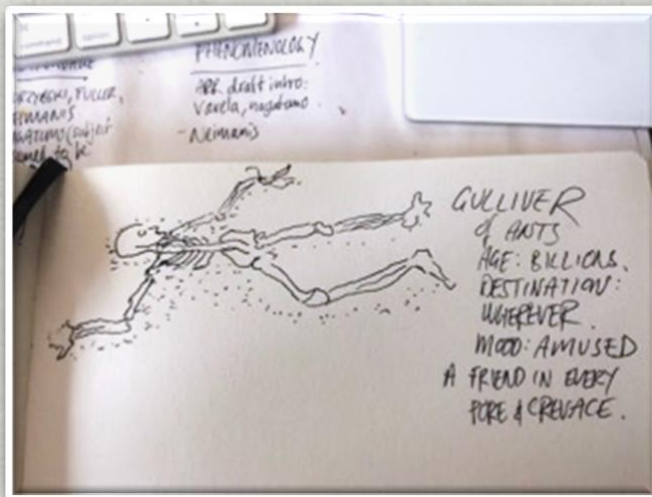 command
option
PHENOMENOLOGY
APR. draft intro:
Varela, nagatomo.
- Neimanis
FULLER,
to be
GULLIVER
& ANTS
AGE: BILLIONS.
DESTINATION:
WHEREVER.
MOOD: AMUSED
A FRIEND IN EVERY
PORE & CREVACE.